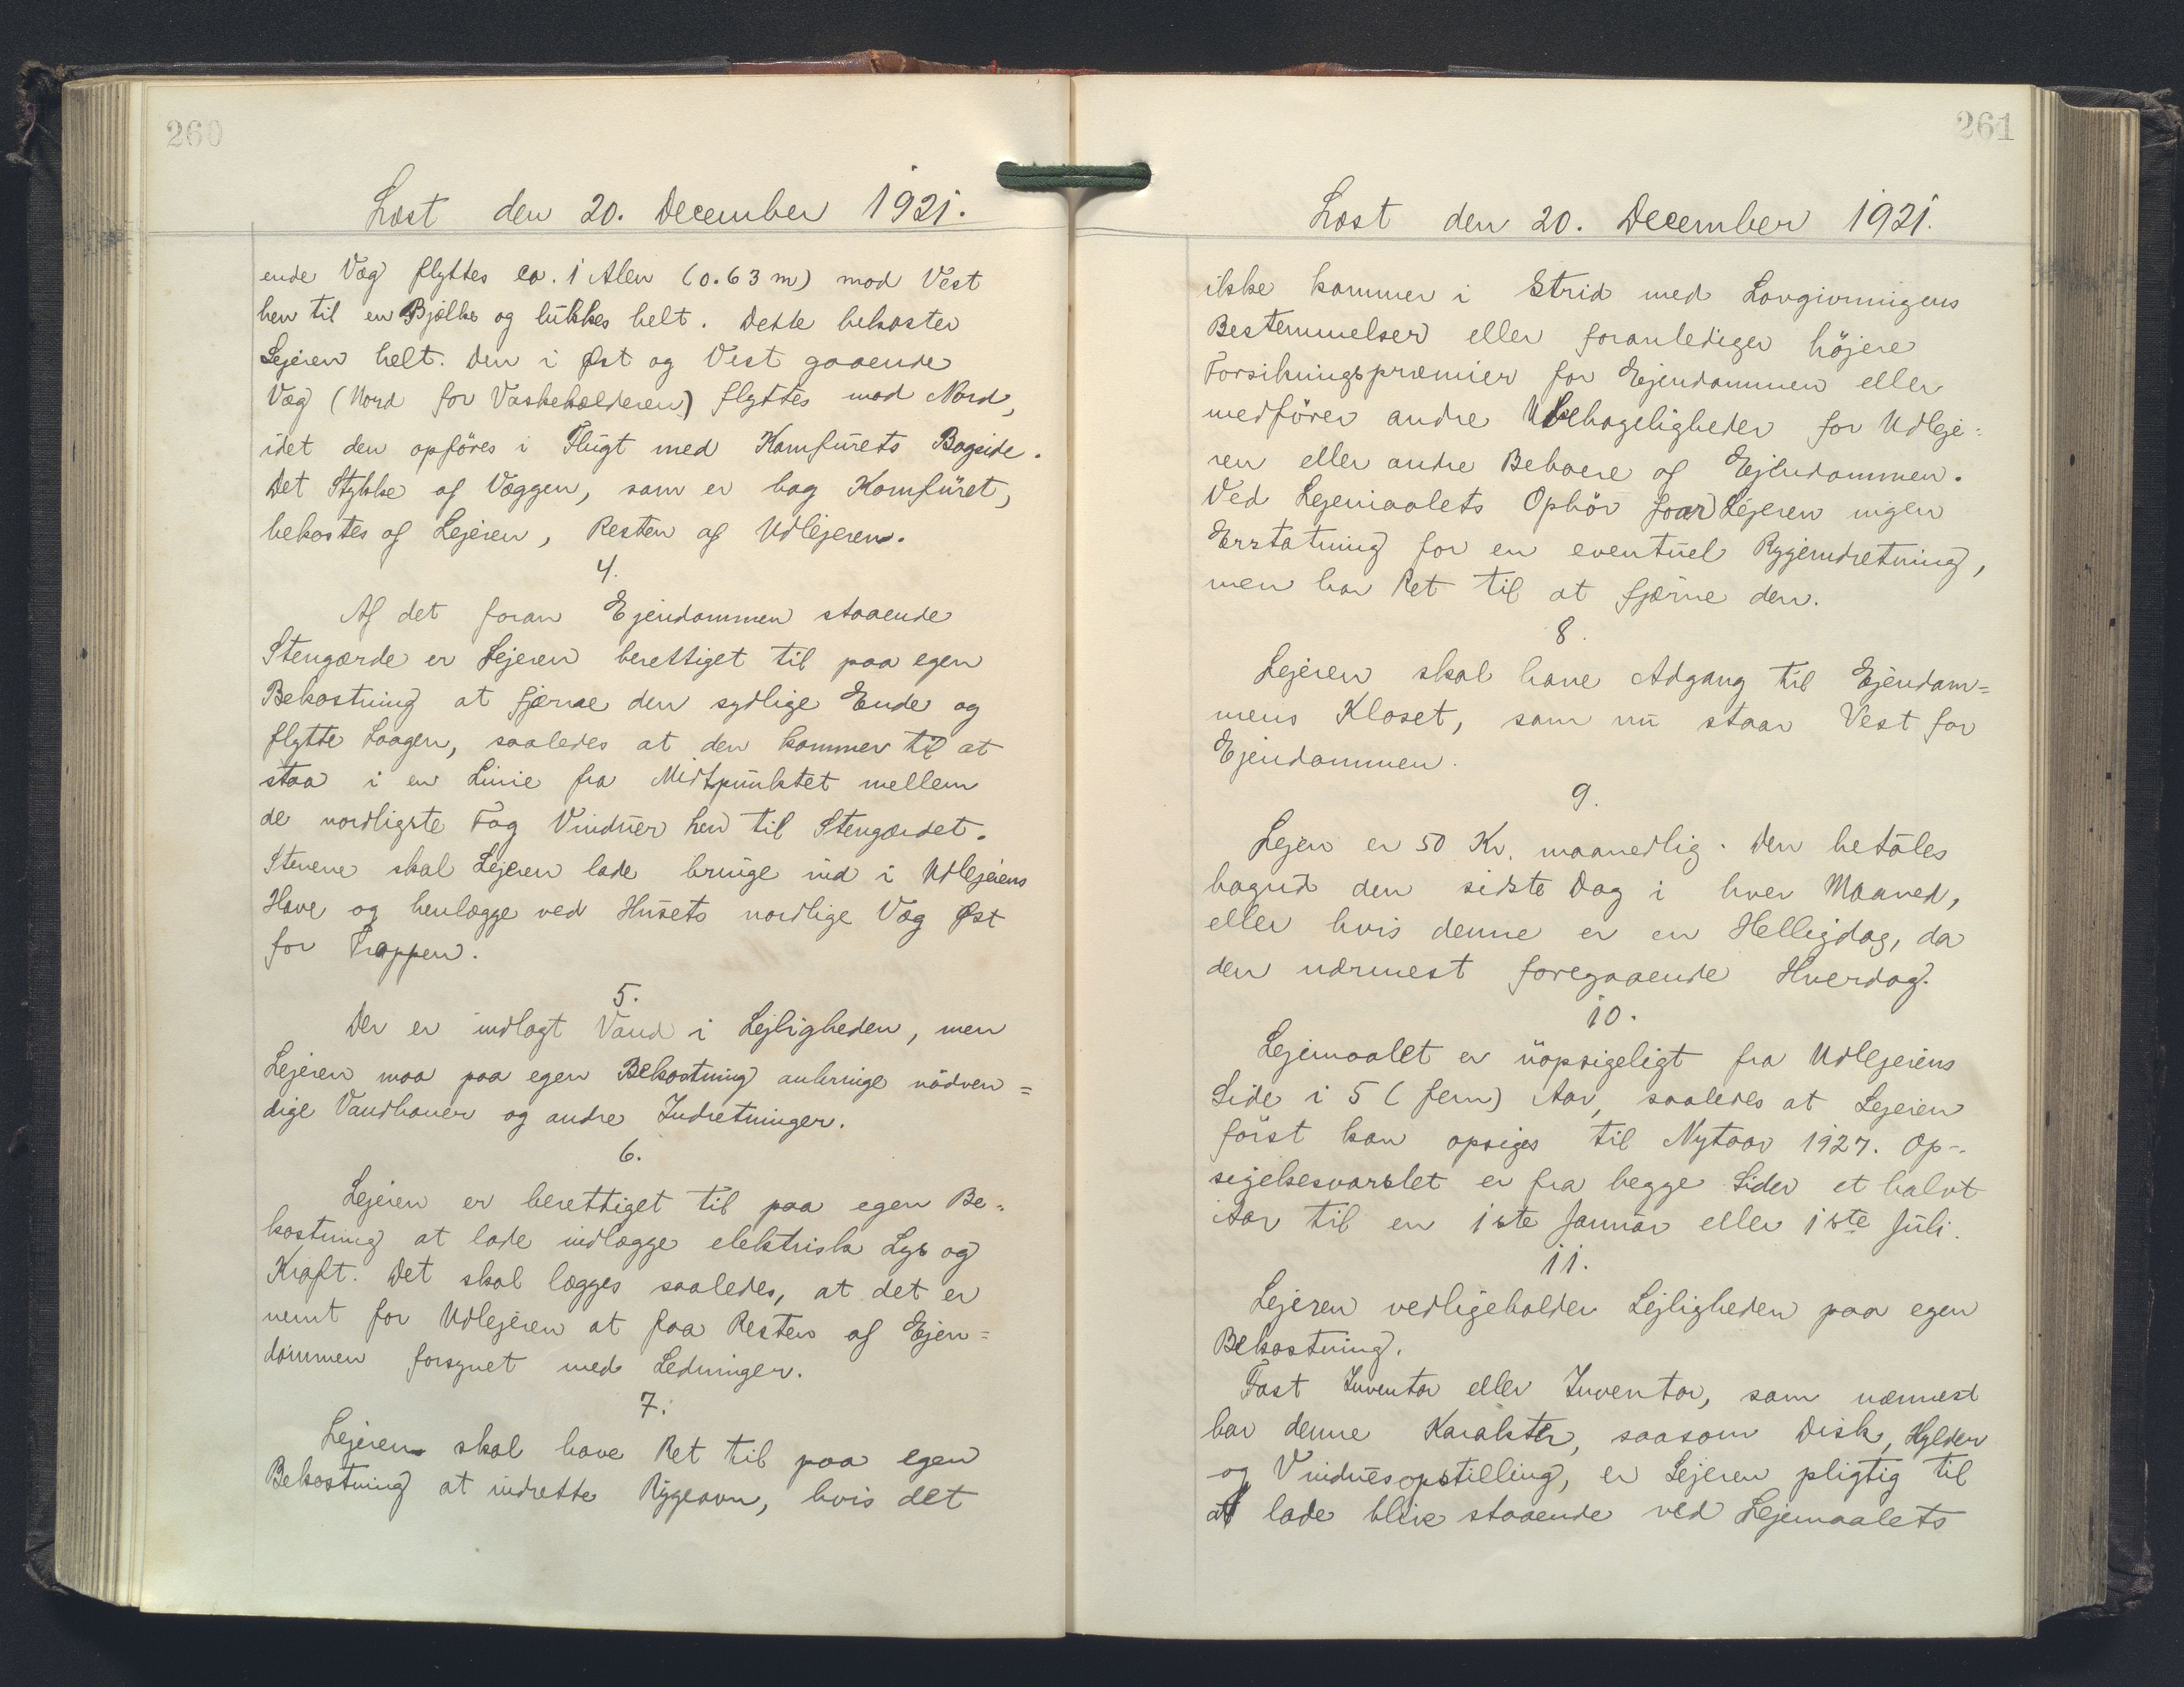 260
Læst den 20. December 1921.
ende Væg flyttes ca. 1 Alen (0.63 m) mod Vest
hen til en Bjælke og lukkes helt. Dette bekoster
Lejeren helt. Den i Øst og Vest gaaende
Væg (Nord for Vaskekælderen) flyttes mod Nord,
idet den opföres i Flugt med Komfurets Bagside.
Det Stykke af Væggen, som er bag Komfuret,
bekostes af Lejeren, Resten af Udlejeren.
4.
Af det foran Ejendommen staaende
Stengærde er Lejeren berettiget til paa egen
Bekostning at fjerne den sydlige Ende og
flytte Laagen, saaledes at den kommer til at
staa i en Linie fra Midtpunktet mellem
de nordligste Fag Vinduer hen til Stengærdet.
Stenene skal Lejeren lade bringe ind i Udlejerens
Have og henlægge ved Husets nordlige Væg Øst
for Trappen.
5.
Der er indlagt Vand i Lejligheden, men
Lejeren maa paa egen Bekostning anbringe nödven=
dige Vandhaner og andre Indretninger.
6.
Lejeren er berettiget til paa egen Be=
kostning at lade indlægge elektrisk Lys og
Kraft. Det skal lægges saaledes, at det er
nemt for Udlejeren at faa Resten af Ejen=
dommen forsynet med Ledninger.
7.
Lejeren skal have Ret til paa egen
Bekostning at indrette Rygeovn, hvis det
261
Læst den 20. December 1921.
ikke kommer i Strid med Lovgivningens
Bestemmelser eller foranlediger höjere
Forsikringspræmier for Ejendommen eller
medförer andre Ubehageligheder for Udleje=
ren eller andre Beboere af Ejendommen.
Ved Lejemaalets Ophör faar Lejeren ingen
Erstatning for en eventuel Rygeindretning,
men har Ret til at fjærne den.
8.
Lejeren skal have Adgang til Ejendom=
mens Kloset, som nu staar Vest for
Ejendommen.
9.
Lejen er 50 Kr. maanedlig. Den betales
bagud den sidste Dag i hver Maaned,
eller hvis denne er en Helligdag, da
den nærmest foregaaende Hverdag.
10.
Lejemaalet er uopsigeligt fra Udlejerens
Side i 5 (fem) Aar, saaledes at Lejeren
först kan opsiges til Nytaar 1927. Op-
sigelsesvarslet er fra begge Sider et halvt
Aar til en 1ste Januar eller 1ste Juli.
11.
Lejeren vedligeholder Lejligheden paa egen
Bekostning.
Fast Inventar eller Inventar, som nærmest
har denne Karakter, saasom Disk, Hylder
og Vinduesopstilling, er Lejeren pligtig til
at lade blive staaende ved Lejemaalets